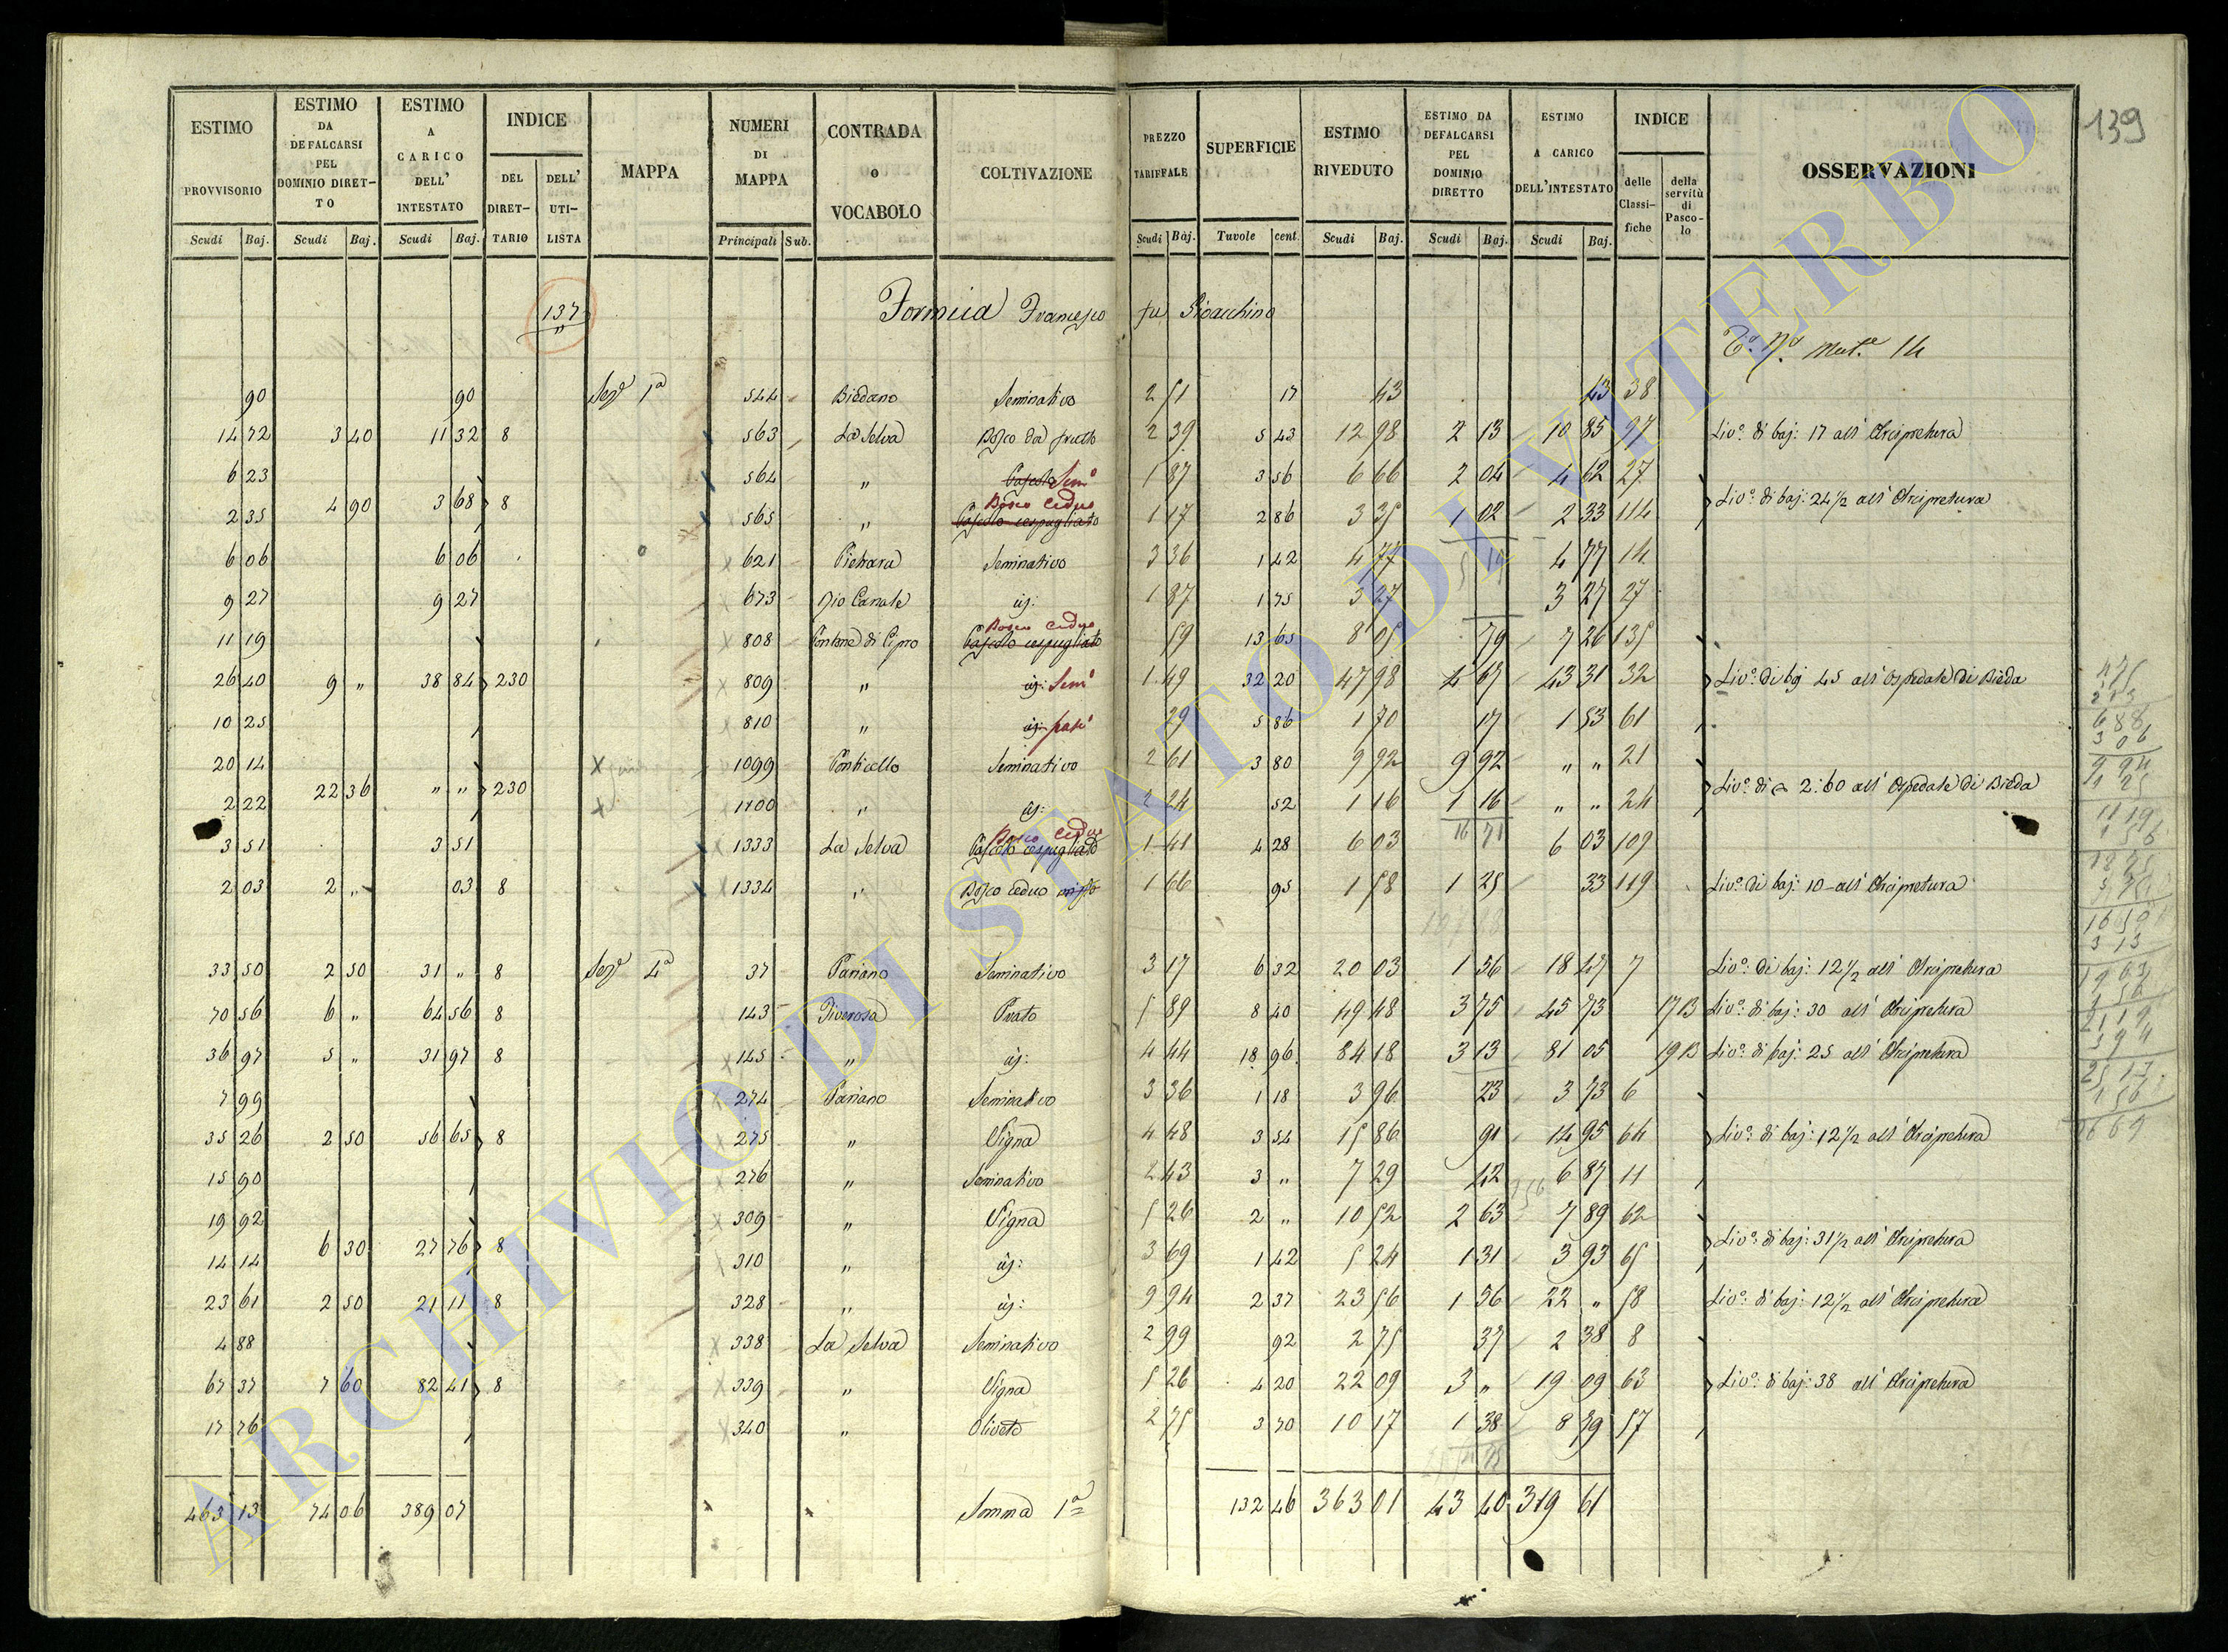 ESTIMO PROVVISORIO | ESTIMO DA DEFALCARSI PEL DOMINIO DIRETTO | ESTIMO A CARICO DELL' INTESTATO | INDICE DEL DIRETTARIO | DELL' UTILISTA | MAPPA | NUMERI DI MAPPA | CONTRADA o VOCABOLO | COLTIVAZIONE | PREZZO TARIFFALE | SUPERFICIE | ESTIMO RIVEDUTO | ESTIMO DA DEFALCARSI PEL DOMINIO DIRETTO | ESTIMO A CARICO DELL'INTESTATO | INDICE delle Classifiche | della servitù di Pascolo | OSSERVAZIONI
Scudi Baj. | Scudi Baj. | Scudi Baj. | Principali Sub. | Scudi Baj. | Tavole cent. | Scudi Baj. | Scudi Baj. | Scudi Baj.
139
137 Formica Francesco fu Gioacchino
Mut.e 14
90 | 90 | Sez.e 1a | 544 | Biedano | Seminativo | 2 51 | 17 | 43 | 43 | 38
14 72 | 3 40 | 11 32 | 8 | 563 | La Selva | Bosco da frutto | 2 39 | 5 43 | 12 98 | 2 13 | 10 85 | 97 | Liv.o di baj: 17 all' Arcipretura
6 23 | 564 | " | Pascolo Sem.o | 1 87 | 3 56 | 6 66 | 2 04 | 4 62 | 27
4 90 | 3 68 | 8 | Liv.o di baj: 24 1/2 all' Arcipretura
2 35 | 565 | " | Pascolo cespugliato Bosco ceduo | 1 17 | 2 86 | 3 35 | 1 02 | 2 33 | 114
6 06 | 6 06 | 621 | Pietrara | Seminativo | 3 36 | 1 42 | 4 77 | 4 77 | 14
9 27 | 9 27 | 673 | Rio Canale | id: | 1 87 | 1 75 | 3 27 | 3 27 | 27
11 19 | 808 | Fontana di Cipro | Pascolo cespugliato Bosco ceduo | 59 | 13 65 | 8 05 | 79 | 7 26 | 135
26 40 | 9 " | 38 84 | 230 | 809 | " | id: Sem.o | 1 49 | 32 20 | 47 98 | 4 67 | 43 31 | 32 | Liv.o di bj 45 all' Ospedale di Bieda
10 25 | 810 | " | id: pas.o | 29 | 5 86 | 1 70 | 17 | 1 53 | 61
20 14 | 1099 | Ponticello | Seminativo | 2 61 | 3 80 | 9 92 | 9 92 | " " | 21
22 36 | " " | 230 | Liv.o di 2:60 all' Ospedale di Bieda
2 22 | 1100 | " | id: | 2 24 | 52 | 1 16 | 1 16 | " " | 24
3 51 | 3 51 | 1333 | La Selva | Pascolo cespugliato Bosco ceduo | 1 41 | 4 28 | 6 03 | 6 03 | 109
2 03 | 2 " | 03 | 8 | 1334 | " | Bosco ceduo misto | 1 66 | 95 | 1 58 | 1 25 | 33 | 119 | Liv.o di baj: 10 all' Arcipretura
33 50 | 2 50 | 31 " | 8 | Sez.e 4a | 37 | Pariano | Seminativo | 3 17 | 6 32 | 20 03 | 1 56 | 18 47 | 7 | Liv.o di baj: 12 1/2 all' Arcipretura
70 56 | 6 " | 64 56 | 8 | 143 | Piverosa | Prato | 5 89 | 8 40 | 49 48 | 3 75 | 45 73 | 17 B | Liv.o di baj: 30 all' Arcipretura
36 97 | 5 " | 31 97 | 8 | 145 | " | id: | 4 44 | 18 96 | 84 18 | 3 13 | 81 05 | 19 B | Liv.o di baj: 25 all' Arcipretura
7 99 | 274 | Pariano | Seminativo | 3 36 | 1 18 | 3 96 | 23 | 3 73 | 6
35 26 | 2 50 | 56 65 | 8 | 275 | " | Vigna | 4 48 | 3 54 | 15 86 | 91 | 14 95 | 64 | Liv.o di baj: 12 1/2 all' Arcipretura
15 90 | 276 | " | Seminativo | 2 43 | 3 " | 7 29 | 42 | 6 87 | 11
19 92 | 309 | " | Vigna | 5 26 | 2 " | 10 52 | 2 63 | 7 89 | 62
6 30 | 27 76 | 8 | Liv.o di baj: 31 1/2 all' Arcipretura
14 14 | 310 | " | id: | 3 69 | 1 42 | 5 24 | 1 31 | 3 93 | 65
23 61 | 2 50 | 21 11 | 8 | 328 | " | id: | 9 94 | 2 37 | 23 56 | 1 56 | 22 " | 58 | Liv.o di baj: 12 1/2 all' Arcipretura
4 88 | 338 | La Selva | Seminativo | 2 99 | 92 | 2 75 | 37 | 2 38 | 8
67 37 | 7 60 | 82 41 | 8 | 339 | " | Vigna | 5 26 | 4 20 | 22 09 | 3 " | 19 09 | 63 | Liv.o di baj: 38 all' Arcipretura
17 76 | 340 | " | Oliveto | 2 75 | 3 70 | 10 17 | 1 38 | 8 79 | 57
463 13 | 74 06 | 389 07 | Somma 1a | 132 46 | 363 01 | 43 40 | 319 61
ARCHIVIO DI STATO DI VITERBO